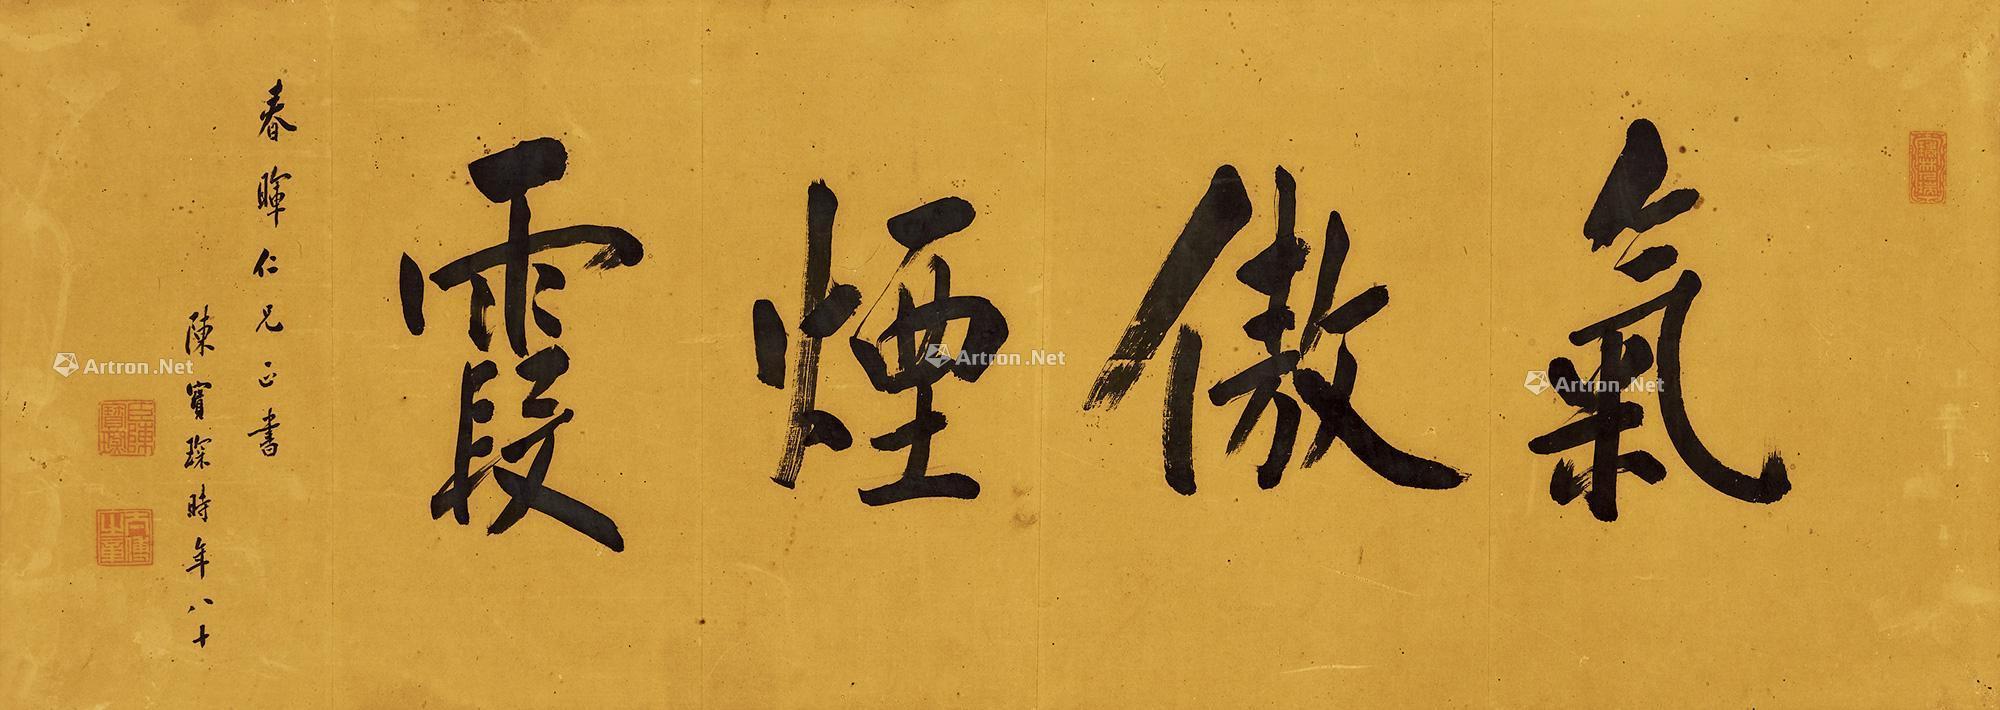 氣傲煙霞
春暉仁兄正書
陳寶琛時年八十
臣陳寶琛
太傅之章
Artron.Net
Artron.Net
Artron.Net